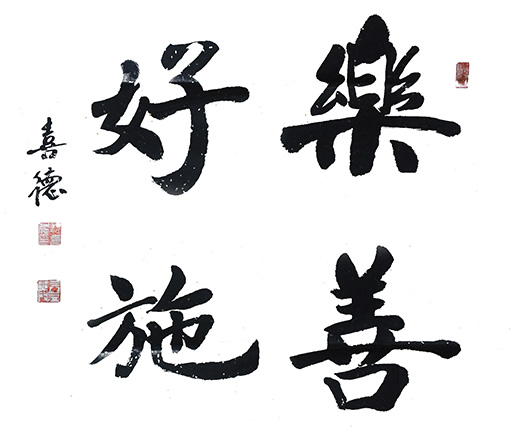 樂善
好施
喜德